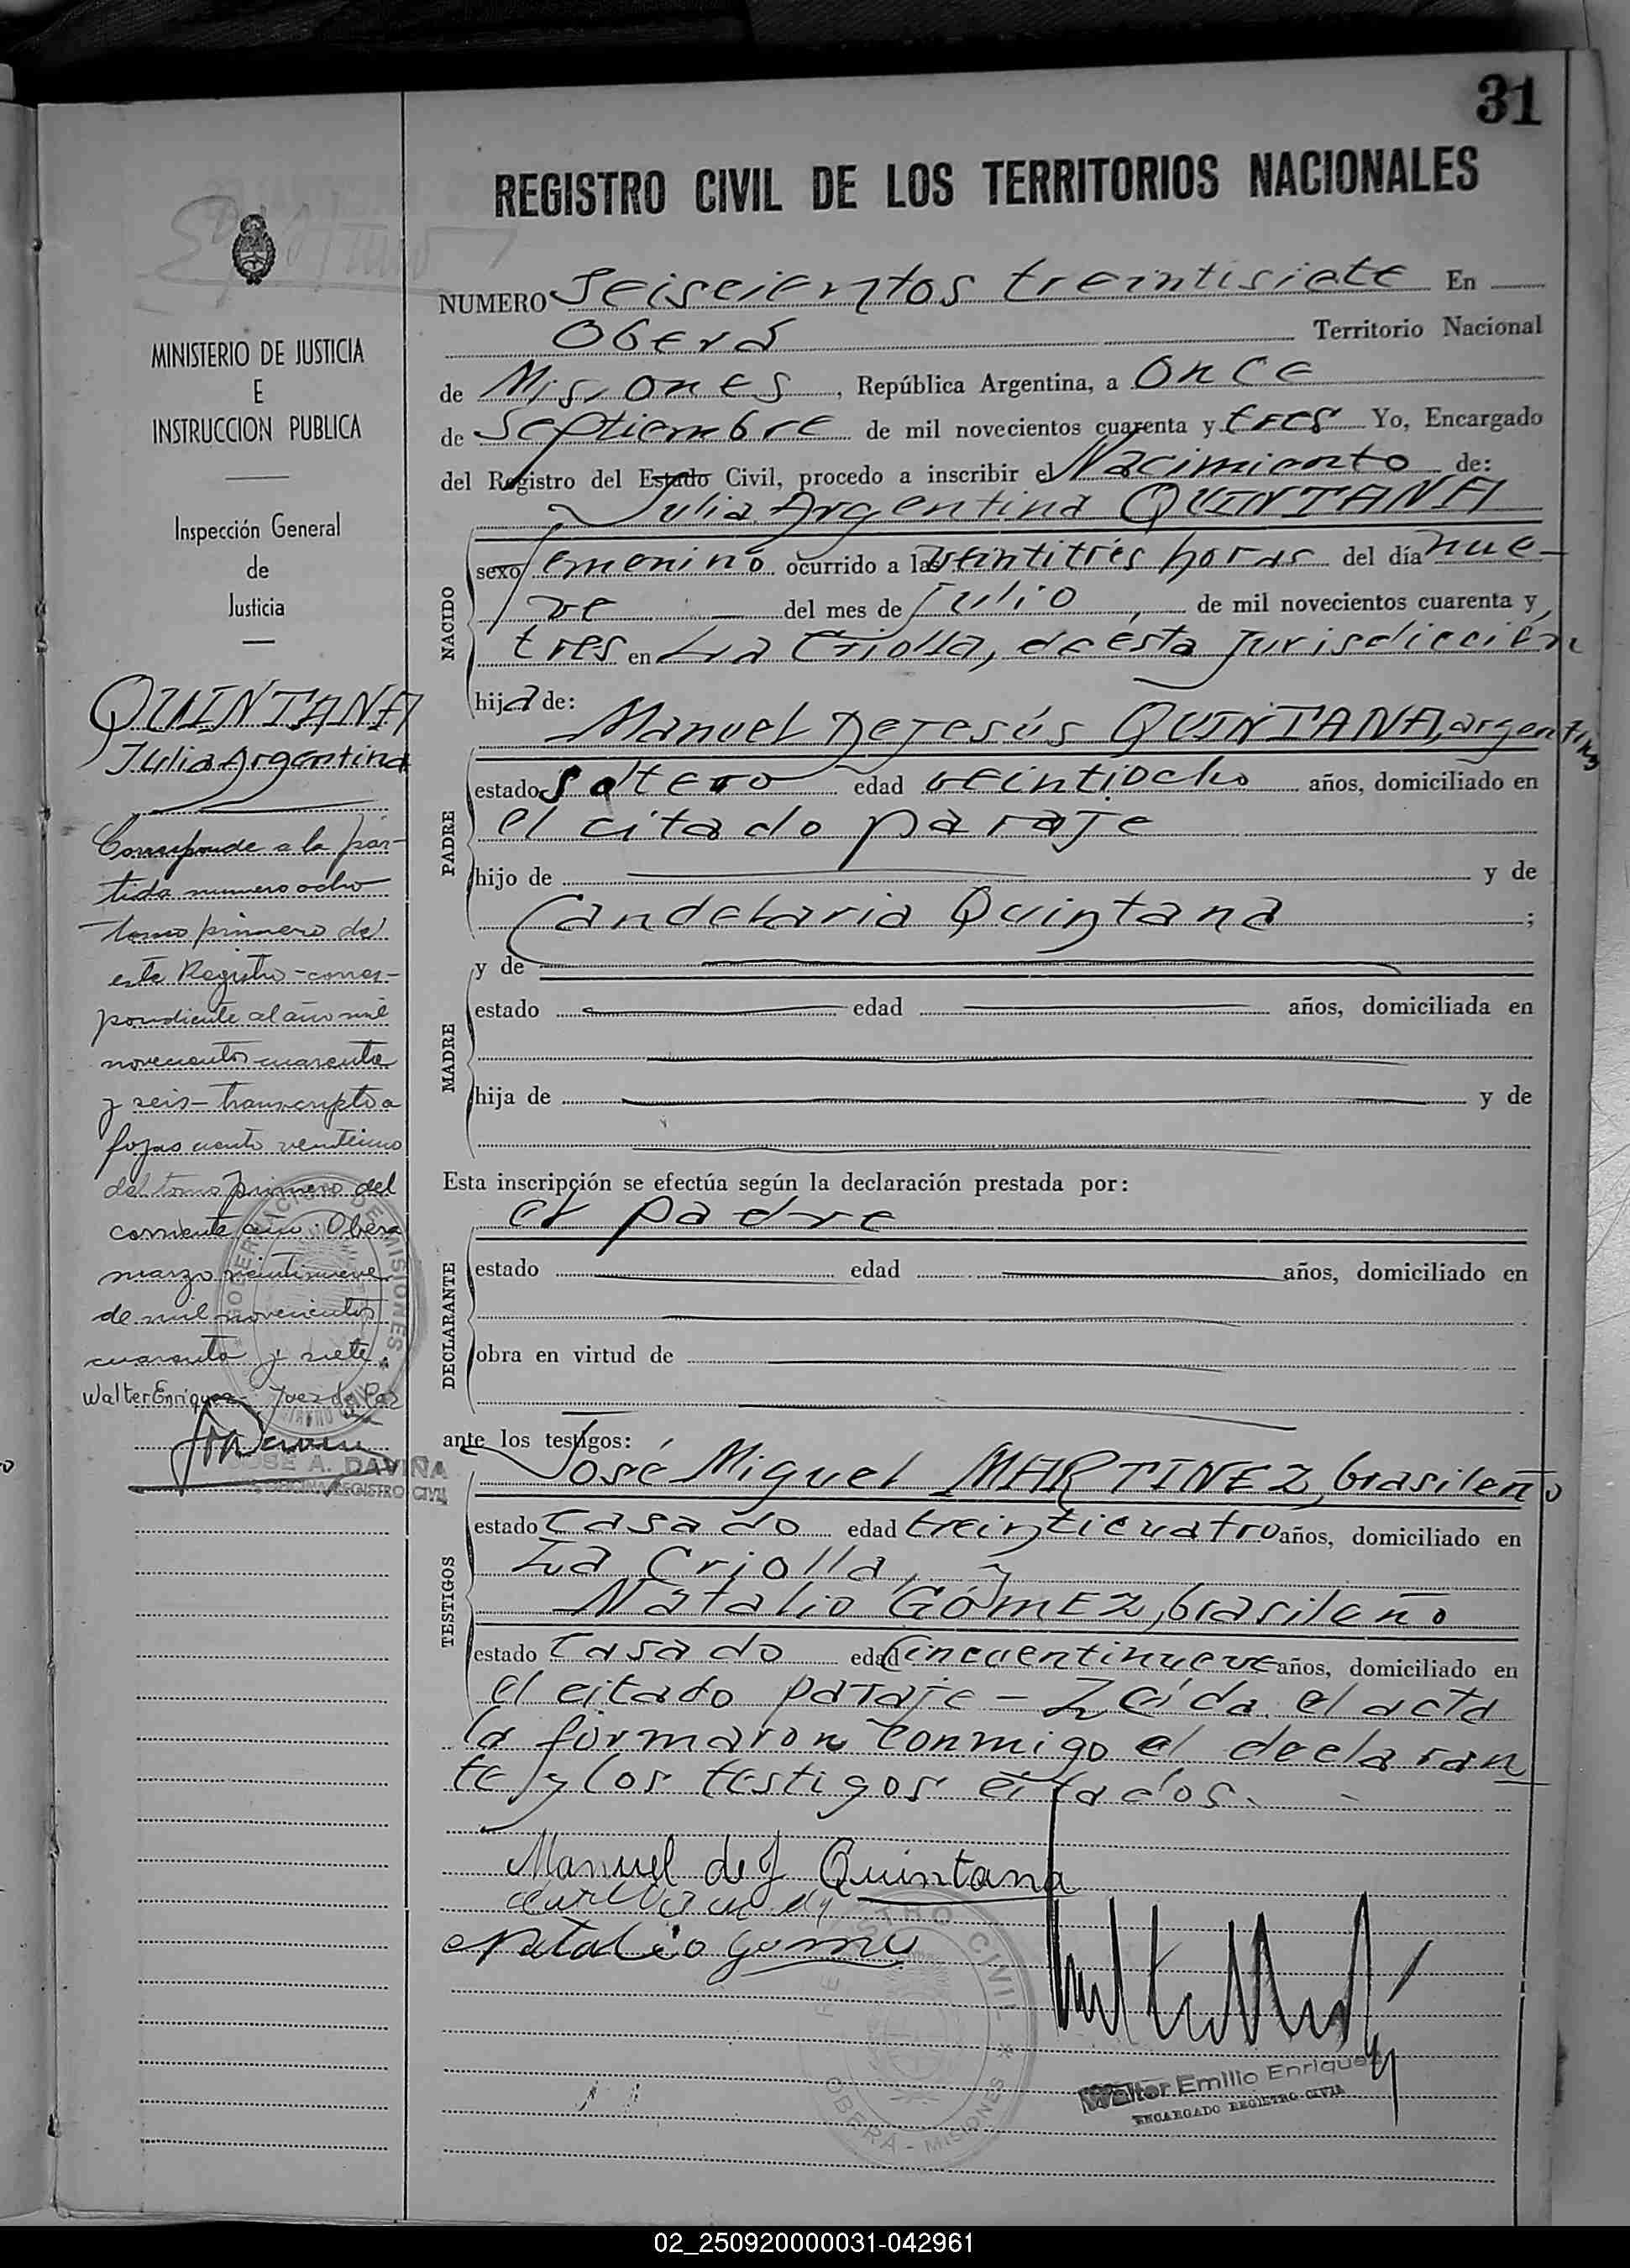 31
REGISTRO CIVIL DE LOS TERRITORIOS NACIONALES
MINISTERIO DE JUSTICIA
E
INSTRUCCION PUBLICA
Inspección General
de
Justicia
QUINTANA
Julia Argentina
Corresponde a la par-
tida numero ocho
tomo primero de
este Registro - corres-
pondiente al año mil
novecientos cuarenta
y seis - transcripto a
fojas ciento veintiuno
del tomo primero del
corriente año. Oberá
marzo veintinueve
de mil novecientos
cuarenta y siete.
Walter Enriquez - Juez de Paz
JOSE A. DAVIÑA
REGISTRO CIVIL
NUMERO Seiscientos treintisiete En
Oberá Territorio Nacional
de Misiones, República Argentina, a once
de Septiembre de mil novecientos cuarenta y tres Yo, Encargado
del Registro del Estado Civil, procedo a inscribir el Nacimiento de:
Julia Argentina QUINTANA
NACIDO
sexo femenino ocurrido a las veintitrés horas del día nue-
ve del mes de Julio, de mil novecientos cuarenta y
tres en La Criolla, de esta Jurisdicción
hija de:
Manuel DeJesús QUINTANA, argentino
PADRE
estado soltero edad veintiocho años, domiciliado en
el citado paraje
hijo de y de
Candelaria Quintana ;
y de
MADRE
estado edad años, domiciliada en
hija de y de
Esta inscripción se efectúa según la declaración prestada por:
el padre
DECLARANTE
estado edad años, domiciliado en
obra en virtud de
ante los testigos:
José Miguel MARTINEZ, brasileño
TESTIGOS
estado casado edad treinticuatro años, domiciliado en
La Criolla, y
Natalio GÓMEZ, brasileño
estado casado edad cincuentinueve años, domiciliado en
el citado paraje - Leída el acta
la firmaron conmigo el declaran
te y los testigos citados.
Manuel de J Quintana
Natalio Gomez
REGISTRO CIVIL * OBERÁ - MISIONES
Walter Emilio Enriquez
ENCARGADO REGISTRO CIVIL
02_250920000031-042961